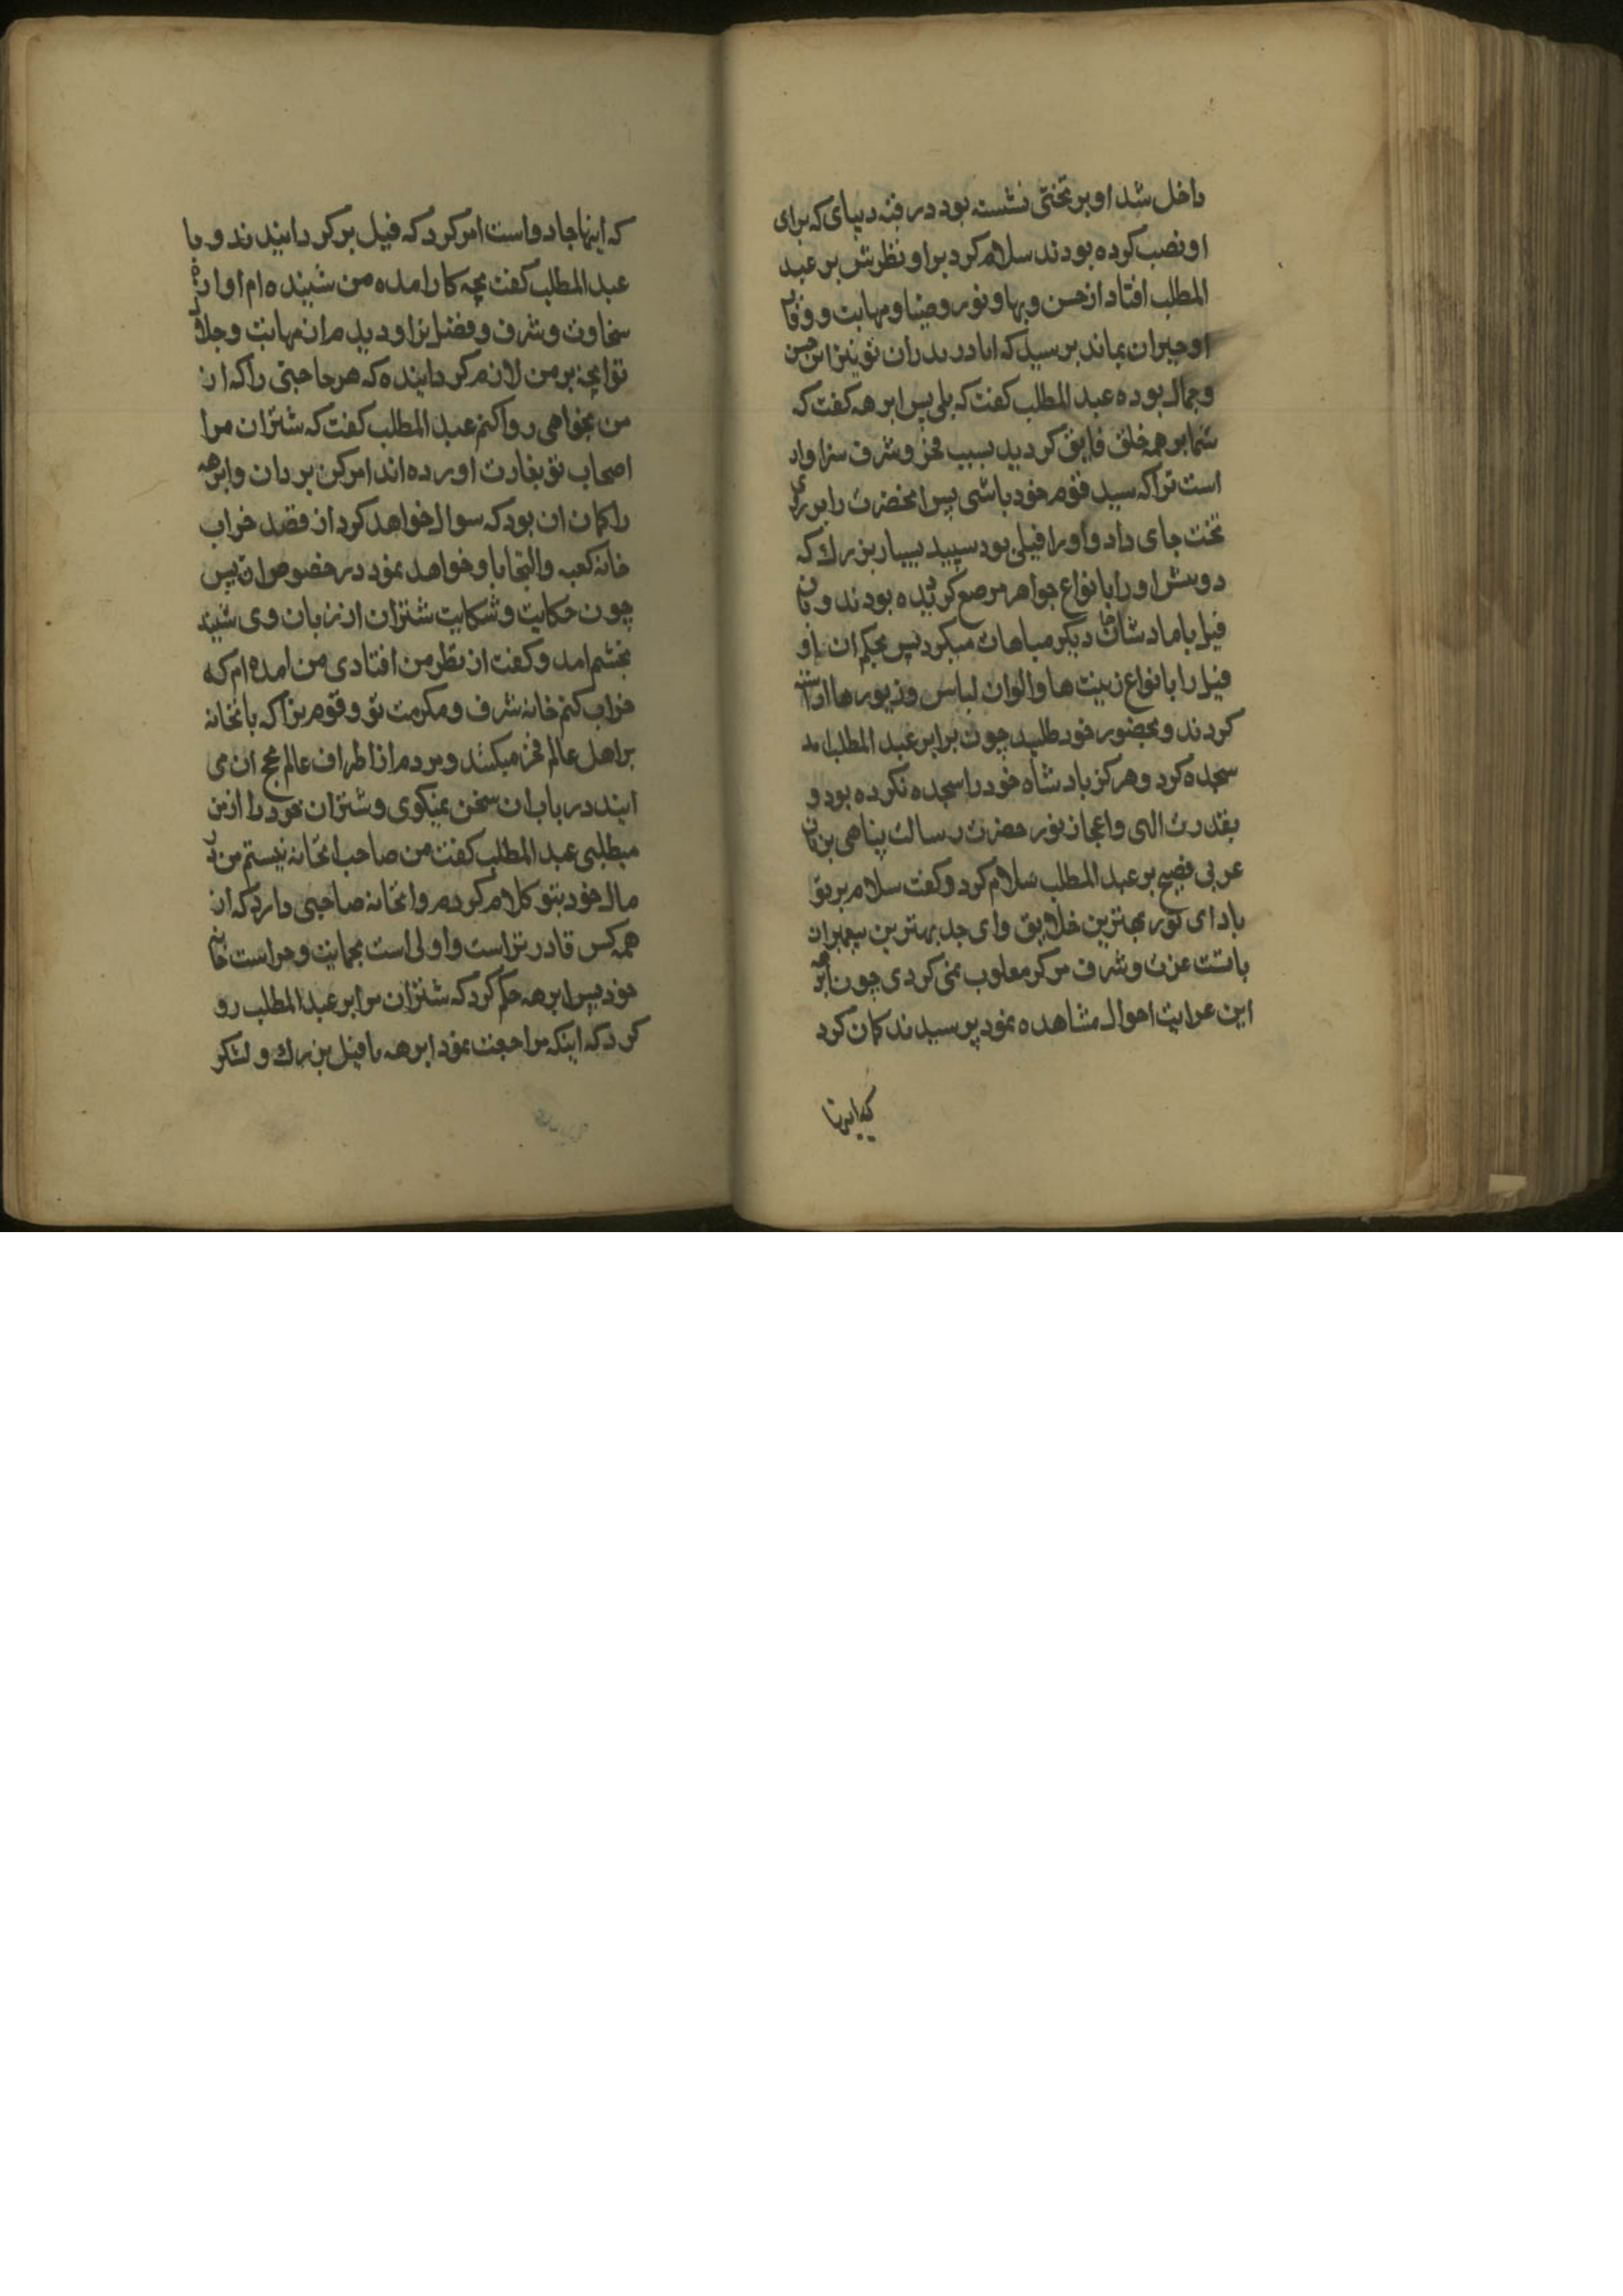 داخل شد او بر تختی نشسته بود در قبه دیبای که برای
او نصب کرده بودند سلام کرد بر او نظرش بر عبد
المطلب افتاد از حسن و بها و نور و ضیا و مهابت و وقار
او حیران بماند پرسید که ایا در پدران تو نیز این حسن
و جمال بوده عبد المطلب کفت که بلی پس ابرهه کفت که
شما بر همه خلق فایق کردید بسبب فخر و شرف سزاوار
است ترا که سید قوم خود باشی پس انحضرت را بر روی
تخت جای داد و او را فیلی بود سپید بسیار بزرك که
دو او را با نواع جواهر مرصع کرده بودند و بان
فیل با مادشاهان دیکر مباهات میکرد پس بحکم ان
فیل را بانواع زینت ها و الوان لباس و زیور ها اراسته
کردند و بحضور خود طلبید چون برابر عبد المطلب امد
سجده کرد و هرکز بادشاه خود را سجده نکرده بود و
بقدرت الهی و اعجاز نور حضرت رسالت پناهی بزبان
عربی فصیح بر عبد المطلب سلام کرد و کفت سلام بر تو
باد ای نور بهترین خلایق و ای جد بهترین پیغمبران
باتست عزت و شرف هرکز مغلوب نمی کردی چون ابرهه
این غرایت احوال مشاهده نمود پرسیدند کمان کرد
که اینها
که اینها جادو است امر کرد که فیل بر کردانیدند و با
عبد المطلب کفت بچه کار امده من شنیده ام اوازه
سخاوت و شرف و فضل ترا و دیدم از مهابت و جلال
تو انچه بر من لازم کردانیده که هر حاجتی را که از
من بخواهی روا کنم عبد المطلب کفت که شتران مرا
اصحاب تو بغارت اورده اند امر کن بر دان و ابرهه
را کمان ان بود که سوال خواهد کرد از قصد خراب
خانه کعبه و التجا باو خواهد نمود در خصوص ان پس
چون حکایت و شکایت شتران از زبان وی شنید
بخشم امد و کفت از نظر من افتادی من امده ام که
خراب کنم خانه شرف و مکرمت تو و قوم ترا که بانخانه
بر اهل عالم فخر میکنند و مردم از اطراف عالم بحج ان می
ایند در باب ان سخن نمیکوی و شتران خود را از من
میطلبی عبد المطلب کفت من صاحب انخانه نیستم من در
مال خود بتو کلام کردم و انخانه صاحبی دارد که از
همه کس قادر تر است و اولی است بحمایت و حراست خانه
خود پس ابرهه حکم کرد که شتران مرا بر عبد المطلب رو
کردکه اینکه مراجعت نمود ابرهه با فیل بزرك و لشکر